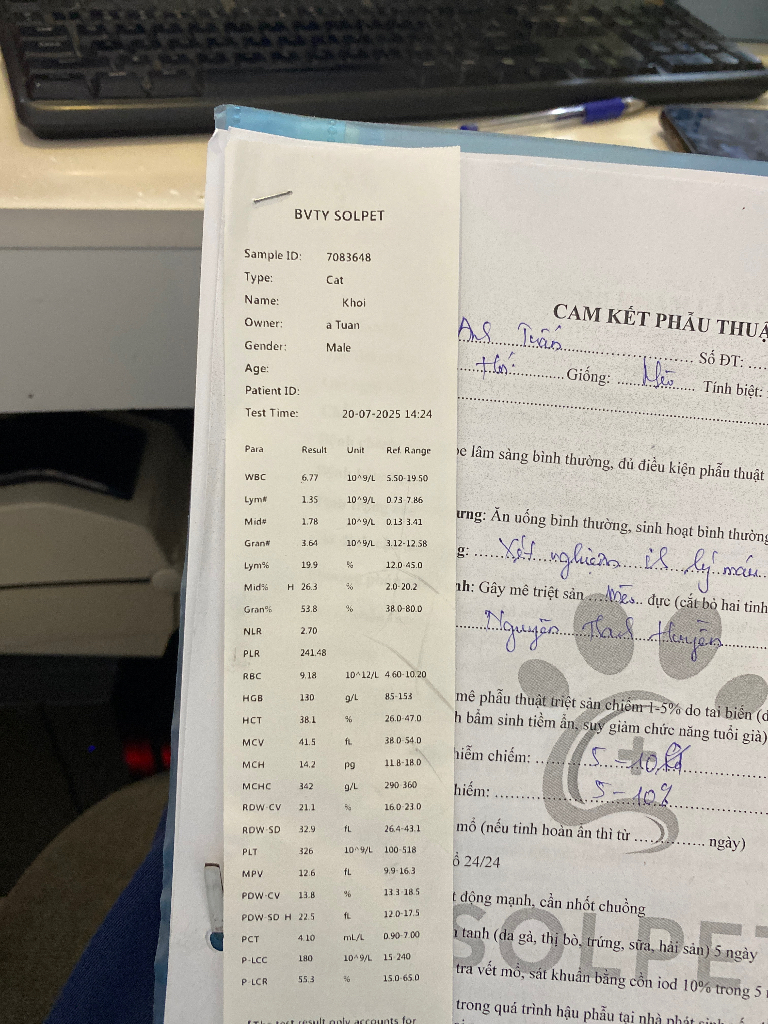 BVTY SOLPET
Sample ID: 7083648
Type: Cat
Name: Khoi
Owner: a Tuan
Gender: Male
Age:
Patient ID:
Test Time: 20-07-2025 14:24
Para Result Unit Ref. Range
WBC 6.77 10^9/L 5.50-19.50
Lym# 1.35 10^9/L 0.73-7.86
Mid# 1.78 10^9/L 0.13-3.41
Gran# 3.64 10^9/L 3.12-12.58
Lym% 19.9 % 12.0-45.0
Mid% H 26.3 % 2.0-20.2
Gran% 53.8 % 38.0-80.0
NLR 2.70
PLR 241.48
RBC 9.18 10^12/L 4.60-10.20
HGB 130 g/L 85-153
HCT 38.1 % 26.0-47.0
MCV 41.5 fL 38.0-54.0
MCH 14.2 pg 11.8-18.0
MCHC 342 g/L 290-360
RDW-CV 21.1 % 16.0-23.0
RDW-SD 32.9 fL 26.4-43.1
PLT 326 10^9/L 100-518
MPV 12.6 fL 9.9-16.3
PDW-CV 13.8 % 13.3-18.5
PDW-SD H 22.5 fL 12.0-17.5
PCT 4.10 mL/L 0.90-7.00
P-LCC 180 10^9/L 15-240
P-LCR 55.3 % 15.0-65.0
test result only accounts for
CAM KẾT PHẪU THUẬ
Anh Tuấn Số ĐT:
Giống: Mèo Tính biệt:
lâm sàng bình thường, đủ điều kiện phẫu thuật
ưng: Ăn uống bình thường, sinh hoạt bình thường
g: Xét nghiệm sl lý máu
nh: Gây mê triệt sản mèo đực (cắt bỏ hai tinh
Nguyễn Huyền
mê phẫu thuật triệt sản chiếm 1-5% do tai biến (d
h bẩm sinh tiềm ẩn, suy giảm chức năng tuổi già)
hiễm chiếm: 5-10
hiếm: 5-10%
mổ (nếu tinh hoàn ẩn thì từ ngày)
ồ 24/24
t động mạnh, cần nhốt chuồng
tanh (da gà, thị bò, trứng, sữa, hải sản) 5 ngày
tra vết mổ, sát khuẩn bằng cồn iod 10% trong 5
trong quá trình hậu phẫu tại nhà phát sinh
SOLPET